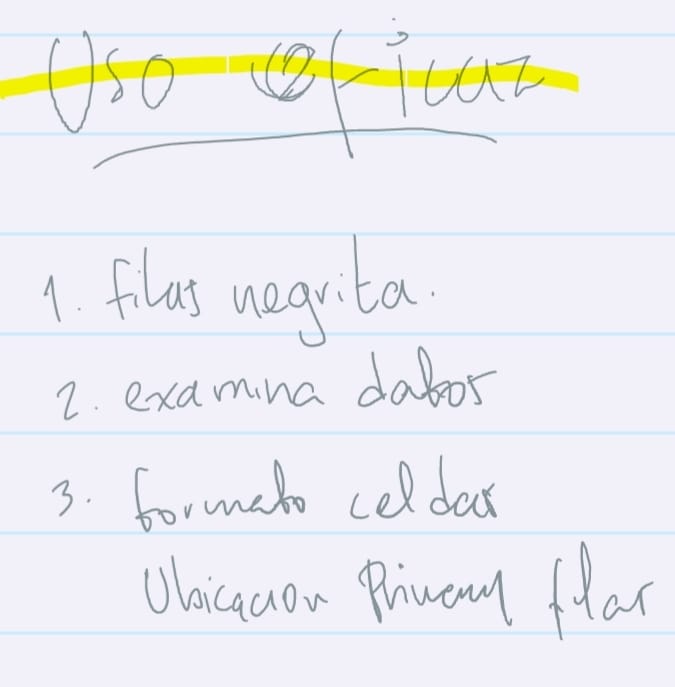 Uso eficaz
1. filas negrita.
2. examina datos
3. formato celdas
Ubicacion filas